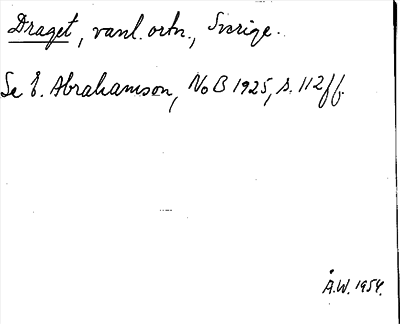 Draget, vanl. ortn., Sverige.
Se E. Abrahamson, NoB 1925, s. 112ff.
Å.W. 1954.